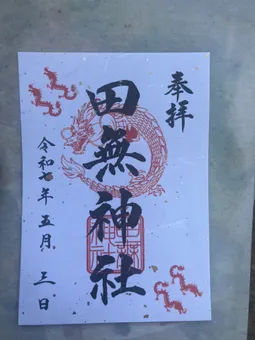 奉拝
田無神社
令和七年五月三日